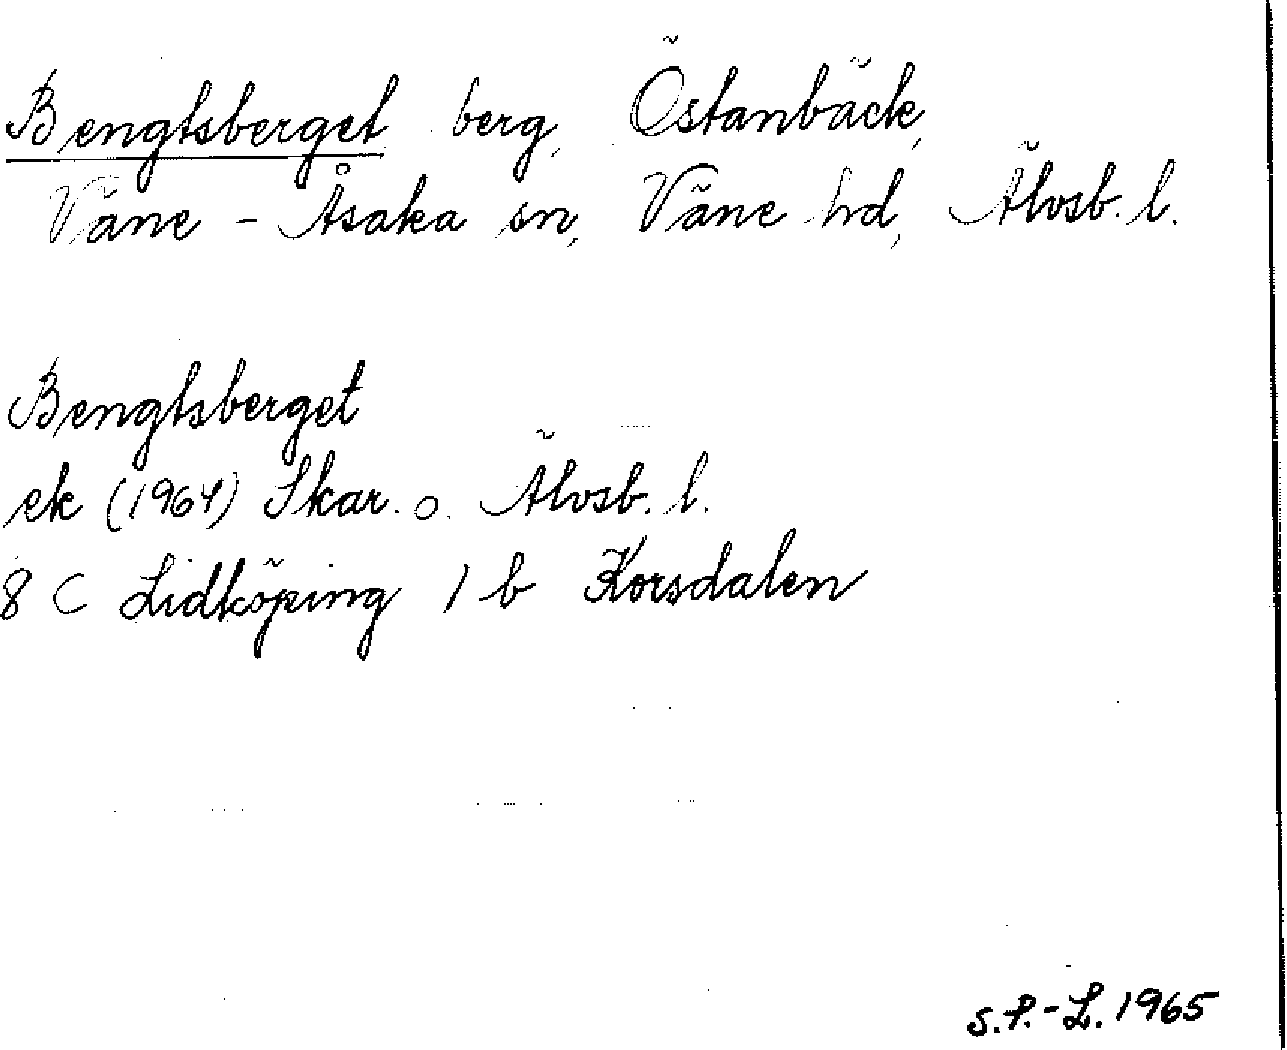 Bengtsberget berg, Östanbäck,
Väne-Åsaka sn, Väne hd, Älvsb. l.
Bengtsberget
ek (1964) Skar. o. Älvsb. l.
8 C Lidköping 1 b Korsdalen
S.P.-L. 1965